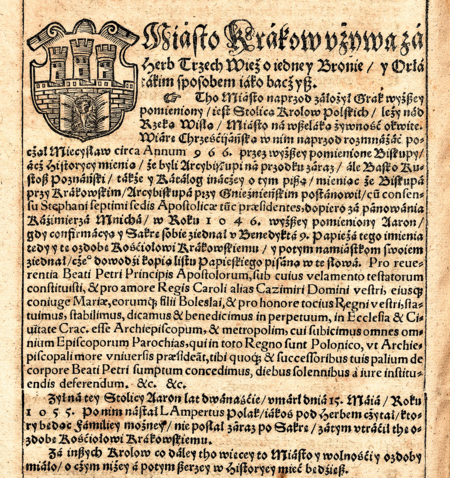 Miásto Krákow vżywa zá
Herb Trzech Wież o iedney Bronie / y Orlá
tákim sposobem iáko baczysz.
☞ Tho Miásto naprzod záłożył Grák wyższey
pomieniony / iest Stolicá Krolow Polskich / leży nád
Rzeką Wisłą / Miásto ná wszeláką żywność okwite.
Wiárę Chrześcijáńską w nim naprzod rozmnażáć po-
czął Mieczysław circa Annum 9 6 6. przez wyższey pomienione Biskupy /
ácz Historycy mienią / że byli Arcybiskupi ná przodku záraz / ále Bászko Ku-
stosz Poznáński / tákże y Kátálog ináczey o tym piszą / mieniąc że Biskupá
przy Krákowie / Arcybiskupá przy Gnieźnieńskim postánowił / cū consen-
su Stepháni septimi sedis Apostolicæ tūc præsidentes, dopiero zá pánowánia
Káźimierzá Mnichá / w Roku 1 0 4 6. wyższey pomieniony Aaron /
gdy confirmácyą y Sákrę sobie ziednał v Benedyktá 9. Papieżá tego imieniá
tedy y tę ozdobę Kośćiołowi Krákowskiemu / y potym namiastkom swoiem
ziednał / cze° dowodzi kopia listu Papieskiego pisána w te słowá. Pro reue-
rentia Beati Petri Principis Apostolorum, sub cuius velamento testatorum
constituisti, & pro amore Regis Caroli alias Cazimiri Domini vestri, eiusq;
coniuge Mariæ, eorumq; filii Boleslai, & pro honore tocius Regni vestri, sta-
tuimus, stabilimus, dicamus & benedicimus in perpetuum, in Ecclesia & Ci-
uitate Crac. esse Archiepiscopum, & metropolim, cui subicimus omnes om-
nium Episcoporum Parochias, qui in toto Regno sunt Polonico, vt Archie-
piscopali more vniuersis præsideāt, tibi quoq; & successoribus tuis palium de
corpore Beati Petri sumptum concedimus, diebus solennibus à iure institu-
endis deferendum. &c. &c.
Zył ná tey Stolicy Aaron lat dwanaście / vmárł dniá 15. Máiá / Roku
1 0 5 5. Po nim nástał LAmpertus Polak / iákoś pod Herbem czytał / kto-
ry będąc Fámiliey możney / nie posłał záraz po Sákrę / zátym vtráćił thę o-
zdobę Kośćiołowi Krákowskiemu.
Zá inszych Krolow co dáley tho więcey to Miásto y wolnośći y ozdoby
miáło / o czym niżey á potym szerzey w Historyey mieć będziesz.